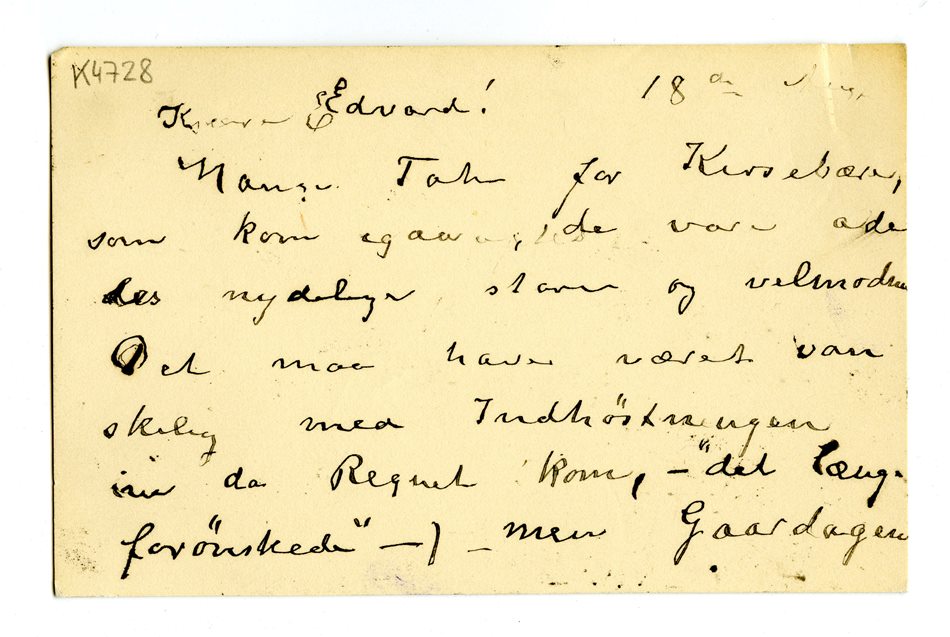 K4728
18de Aug.
Kjære Edvard!
Mange Tak for Kirsebær,
som kom igaar, de vare alde
les nydelige store og velmodne
Det maa have været van
skelig med Indhöstningen
da Regnet kom, – "det læng-
forönskede" –) – men Gaardagen